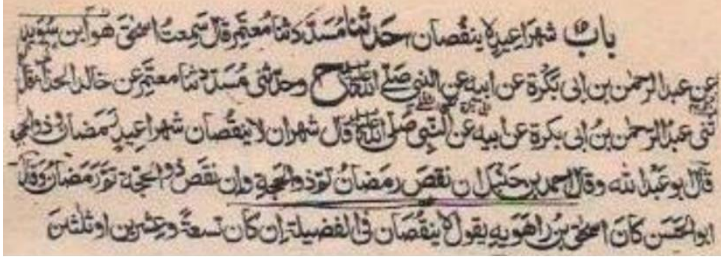 باب شهرا عيد لا ينقصان حدثنا مسدد ثنا معتمر قال سمعت اسحق هو ابن سويد
عن عبد الرحمن بن ابى بكرة عن ابيه عن النبي صلى الله ح وحدثنى مسدد ثنا معتمر عن خالد الحذاء قال
ثنى عبد الرحمن بن ابى بكرة عن ابيه عن النبي صلى الله قال شهران لا ينقصان شهرا عيد رمضان وذو الحجة
قال ابو عبد الله وقال احمد بن حنبل ان نقص رمضان تم ذو الحجة وان نقص ذو الحجة تم رمضان وقال
ابو الحسن كان اسحق بن راهويه يقول لا ينقصان فى الفضيلة ان كان تسعة وعشرين او ثلثين